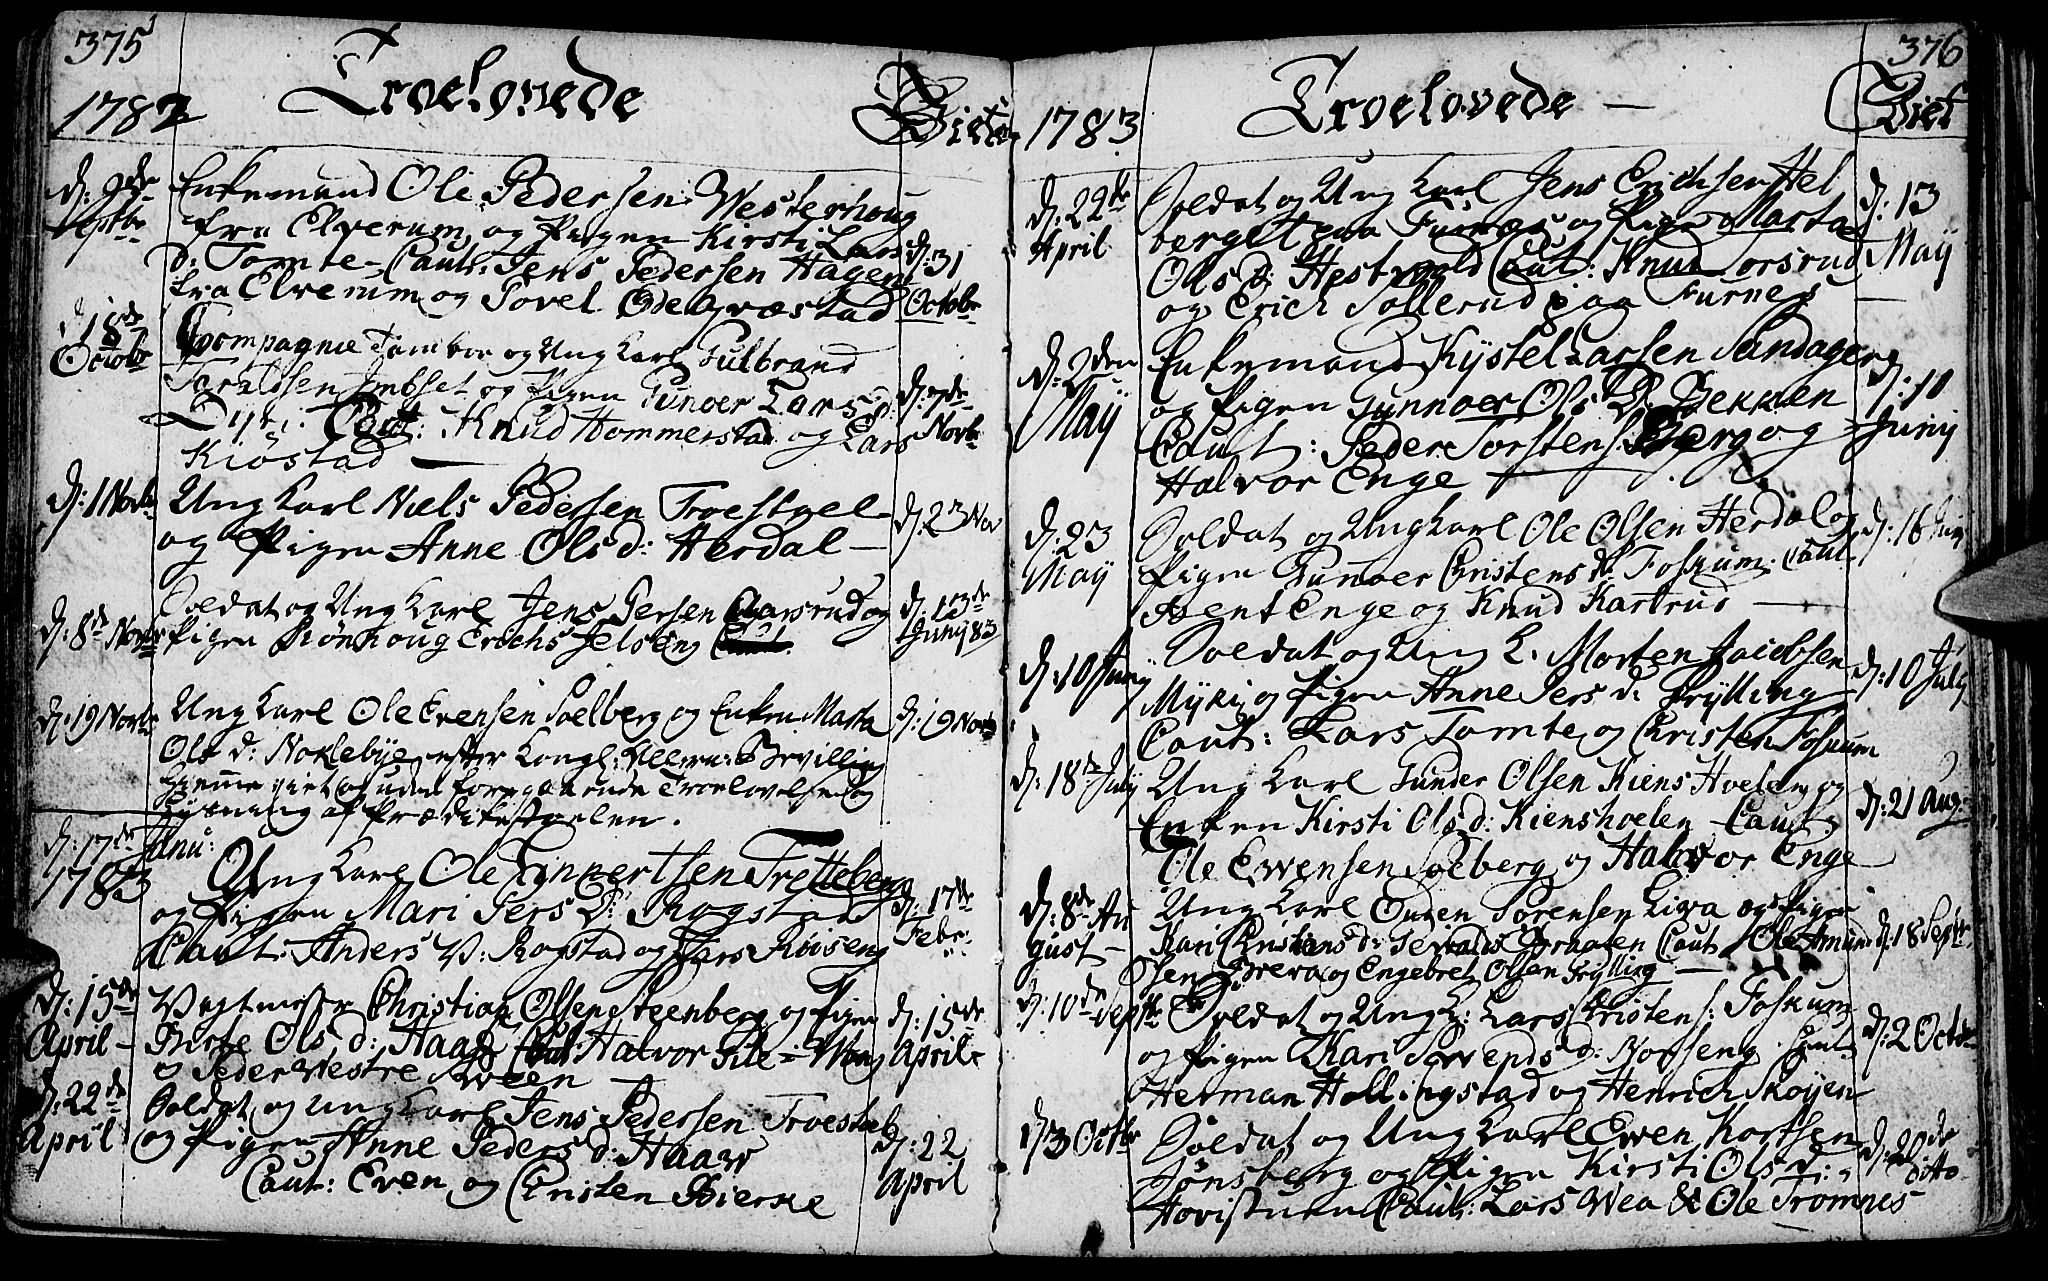 375
1782
Troelovede
Viede
d: 2de Septbr
Enkemand Ole Pedersen Westerhoug
fra Elverum, og Pigen Kirsti Lars
d: Tomte - Caut: Jens Pedersen Hagen
fra Elverum og Povel Ødegræstad
d: 31 Octobr
d: 18de Octobr
Compagnie Tambor og Ung Karl Gulbrand
Taraldsen Imbset og Pigen Gunoer Lars d:
Caut: Knud Hommerstad og Lars
Kiøstad
d: 7de Novb
d: 1 Novbr
Ung Karl Niels Pedersen Troestvel
og Pigen Anne Ols d: Herdal
d: 23 Nov
d: 8de Novbr
Soldat og Ung Karl Jens Persen og
Pigen Rønnoug Erichs
d: 13de Junij 83
d: 19 Novbr
Ung Karl Ole Evensen Soelberg og Enken Marta
Ols d: Noklebye efter Kongl: Allern: Bevilling
hjemme viet og uden foregaaende Troelovelse og
Lysning af Prædikestoelen.
d: 19 Novb
d: 17de Janu:
1783
Ung Karl Ole Finnertsen Tretteberg
og Pigen Mari Pers d: Rogstad
Caut: Anders V: Rogstad og Lars Røiseng
d: 17de Febr:
d: 15de April
Vagtmester Christian Olsen Steenberg og Pigen
Berte Ols d: Haag Caut: Halvor Gile
o Peder Westre Sween
d: 15de April
d: 22de April
Soldat og Ung Karl Jens Pedersen Troestvel
og Pigen Anne Peders d: Haaw
Caut: Even og Christen Bierke
d: 22 April
376
1783
Troelovede
Viet
d: 22de April
Soldat og Ung Karl Jens Erichsen Hel
berget paa Furnæs og Pigen Marta
Ols d: Hestvold Caut: Knud Torsrud
og Erich Sollerud paa Furnes
d: 13 Maij
d: 2den Maij
Enkemand Kystel Larsen Sandager
og Pigen Gunnoer Ols D: Bekken
Caut: Peder Torstens. Berg og
Halvor Enge
d: 10 Junij
d: 23 Maij
Soldat og Ung Karl Ole Olsen Herdal og
Pigen Gunoer Christens d: Foskum. Caut:
Bent Enge og Knud Kastrud
d: 16 Junij
d: 10 Junij
Soldat og Ung K. Morten Jacobsen
Myri og Pigen Anne Pers d: Frylling
Caut: Lars Tomte og Christen Foskum
d: 10 July
d: 18de July
Ung Karl Gunder Olsen Kiens Hoelen og
Enken Kirsti Ols d: Kienshoelen Caut:
Ole Ewensen Soeberg og Halvor Enge
d: 21 Aug:
d: 8de August
Ung Karl Enden Sørensen Liva og Pigen
Kari Christens d: Braaten Caut: Ole Amund
Olsen Breva og Engebret Olsen Frylling
d: 18 Septr
d: 10de Septbr
Soldat og Ung K: Lars Christens: Foskum
og Pigen Kari Swends d: Norseng. Caut:
Herman Hollingstad og Henrich Skøyen
d: 2 Octobr
d: 3 Octbr
Soldat og Ung Karl Ewen Kortsen
Jønsberg og Pigen Kirsti Ols d:
Hovistuen Caut: Lars Wea & Ole Tromnes
d: 20de ditto